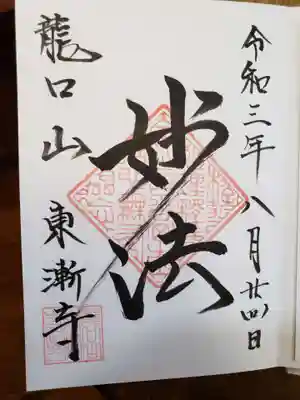 令和三年八月廿四日
妙法
龍口山
東漸寺